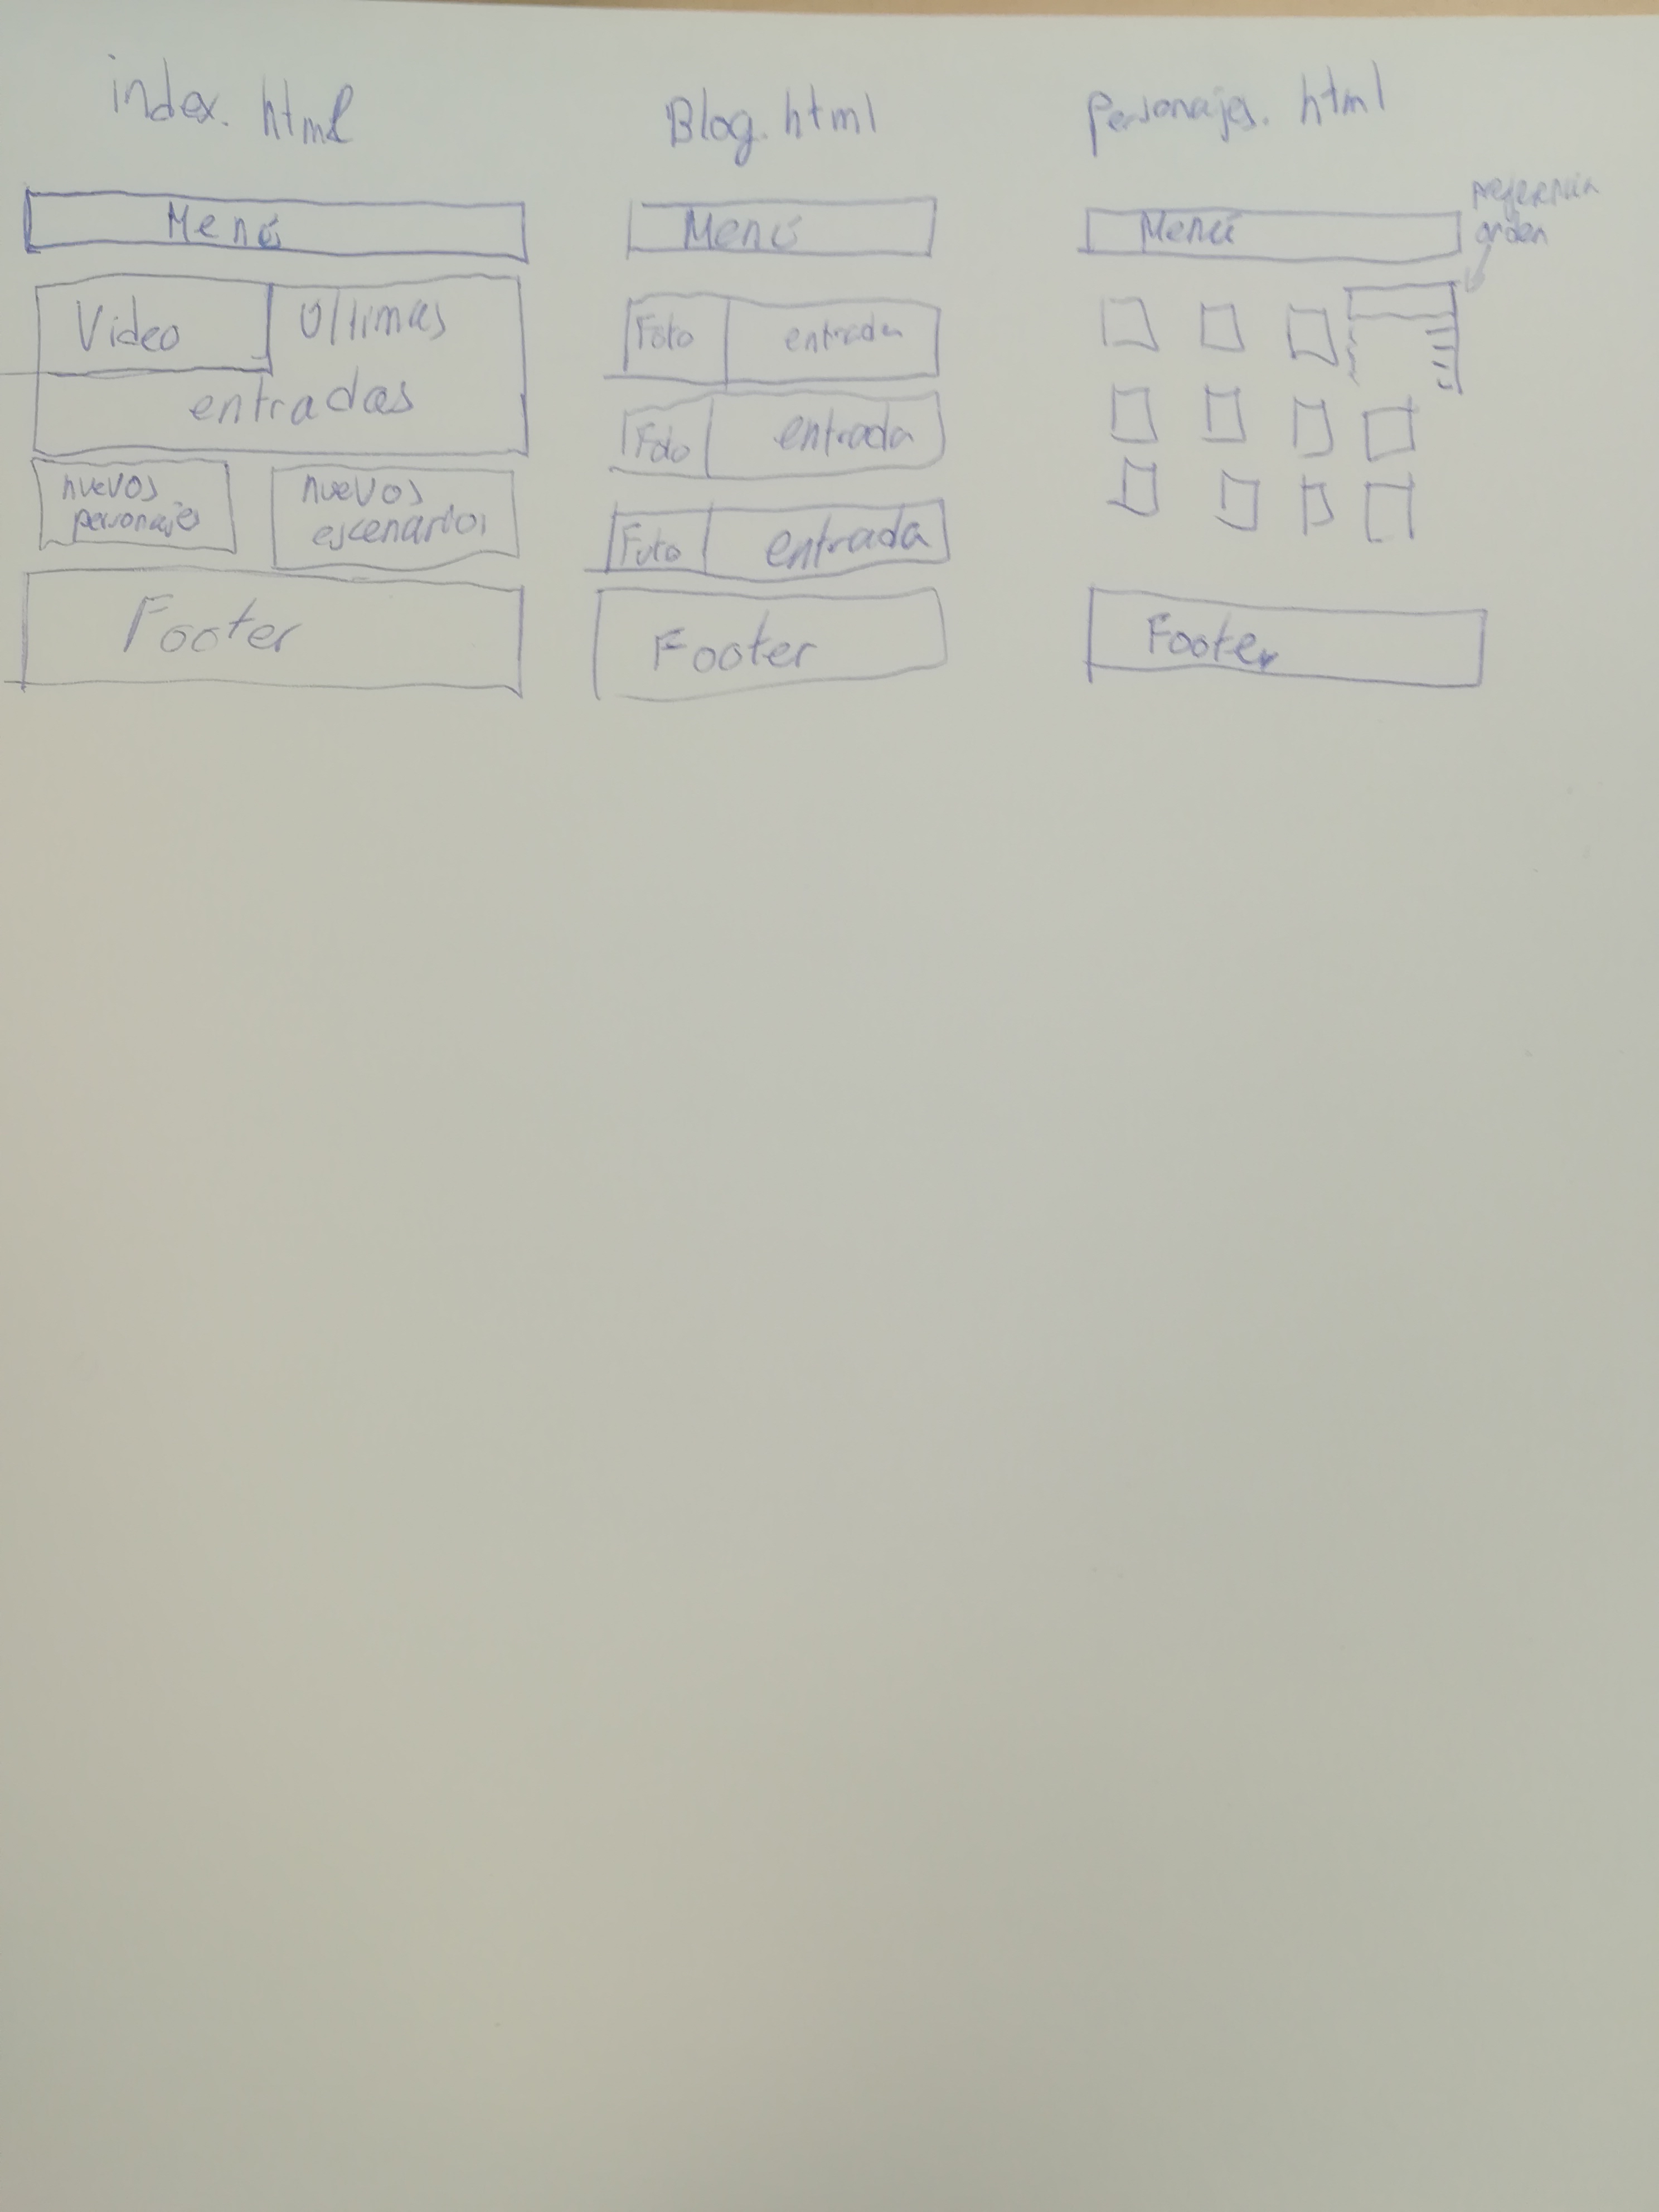 index.html
Menú
Video
Ultimas
entradas
nuevos
personajes
nuevos
escenarios
Footer
Blog.html
Menú
Foto
entrada
Foto
entrada
Foto
entrada
Footer
Personajes.html
Menú
orden
Footer